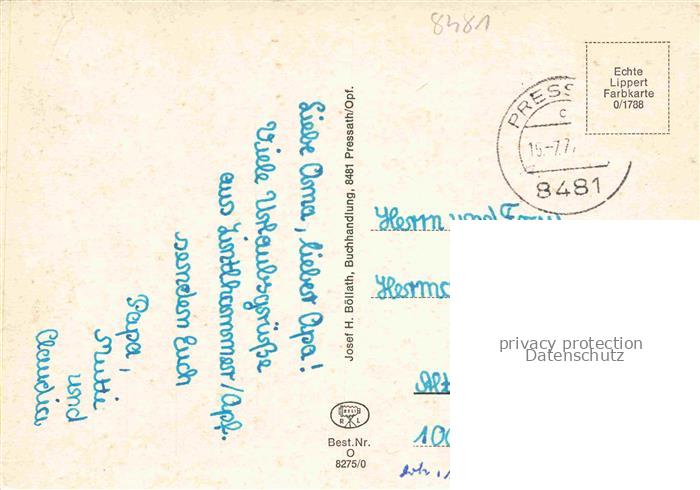 8481
Echte
Lippert
Farbkarte
0/1788
PRESS
c
15.-7.7
8481
Liebe Oma, lieber Opa!
Viele Urlaubsgrüße
aus Hinthammer/Opf.
senden Euch
Papa,
Mutti
und
Claudia
Josef H. Böllath, Buchhandlung, 8481 Pressath/Opf.
Herrn und Frau
Herma
Alt
100
privacy protection
Datenschutz
R L
Best.Nr.
O
8275/0